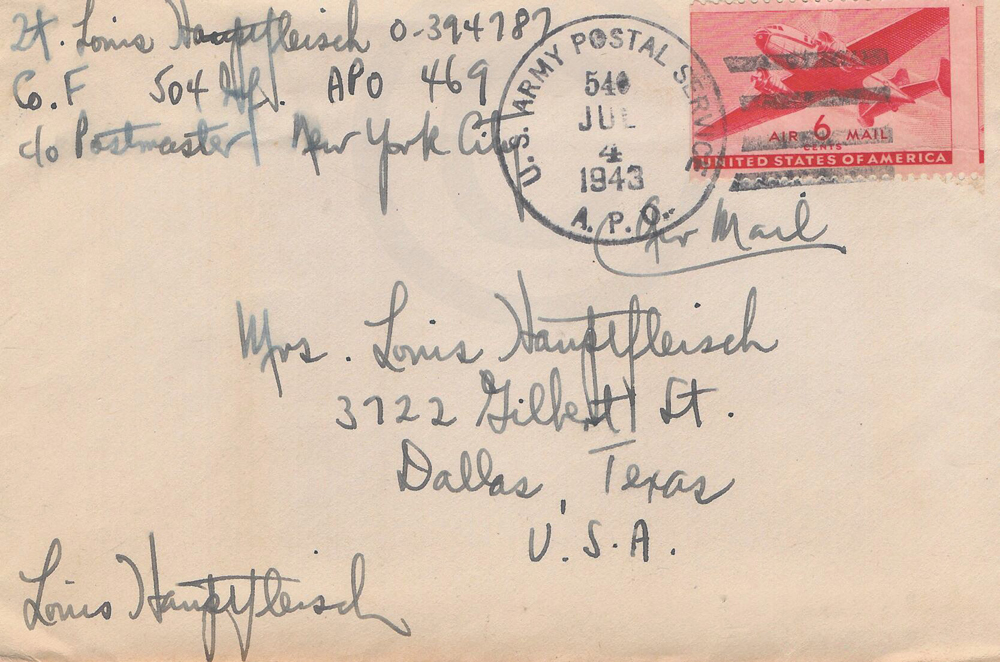 Lt. Louis Hauptfleisch 0-394787
Co. F 504 APO 469
c/o Postmaster New York City
U.S. ARMY POSTAL SERVICE
JUL
4
1943
A.P.O.
AIR 6 MAIL
CENTS
UNITED STATES OF AMERICA
Air Mail
Mrs. Louis Hauptfleisch
3722 Gilbert St.
Dallas, Texas
U.S.A.
Louis Hauptfleisch